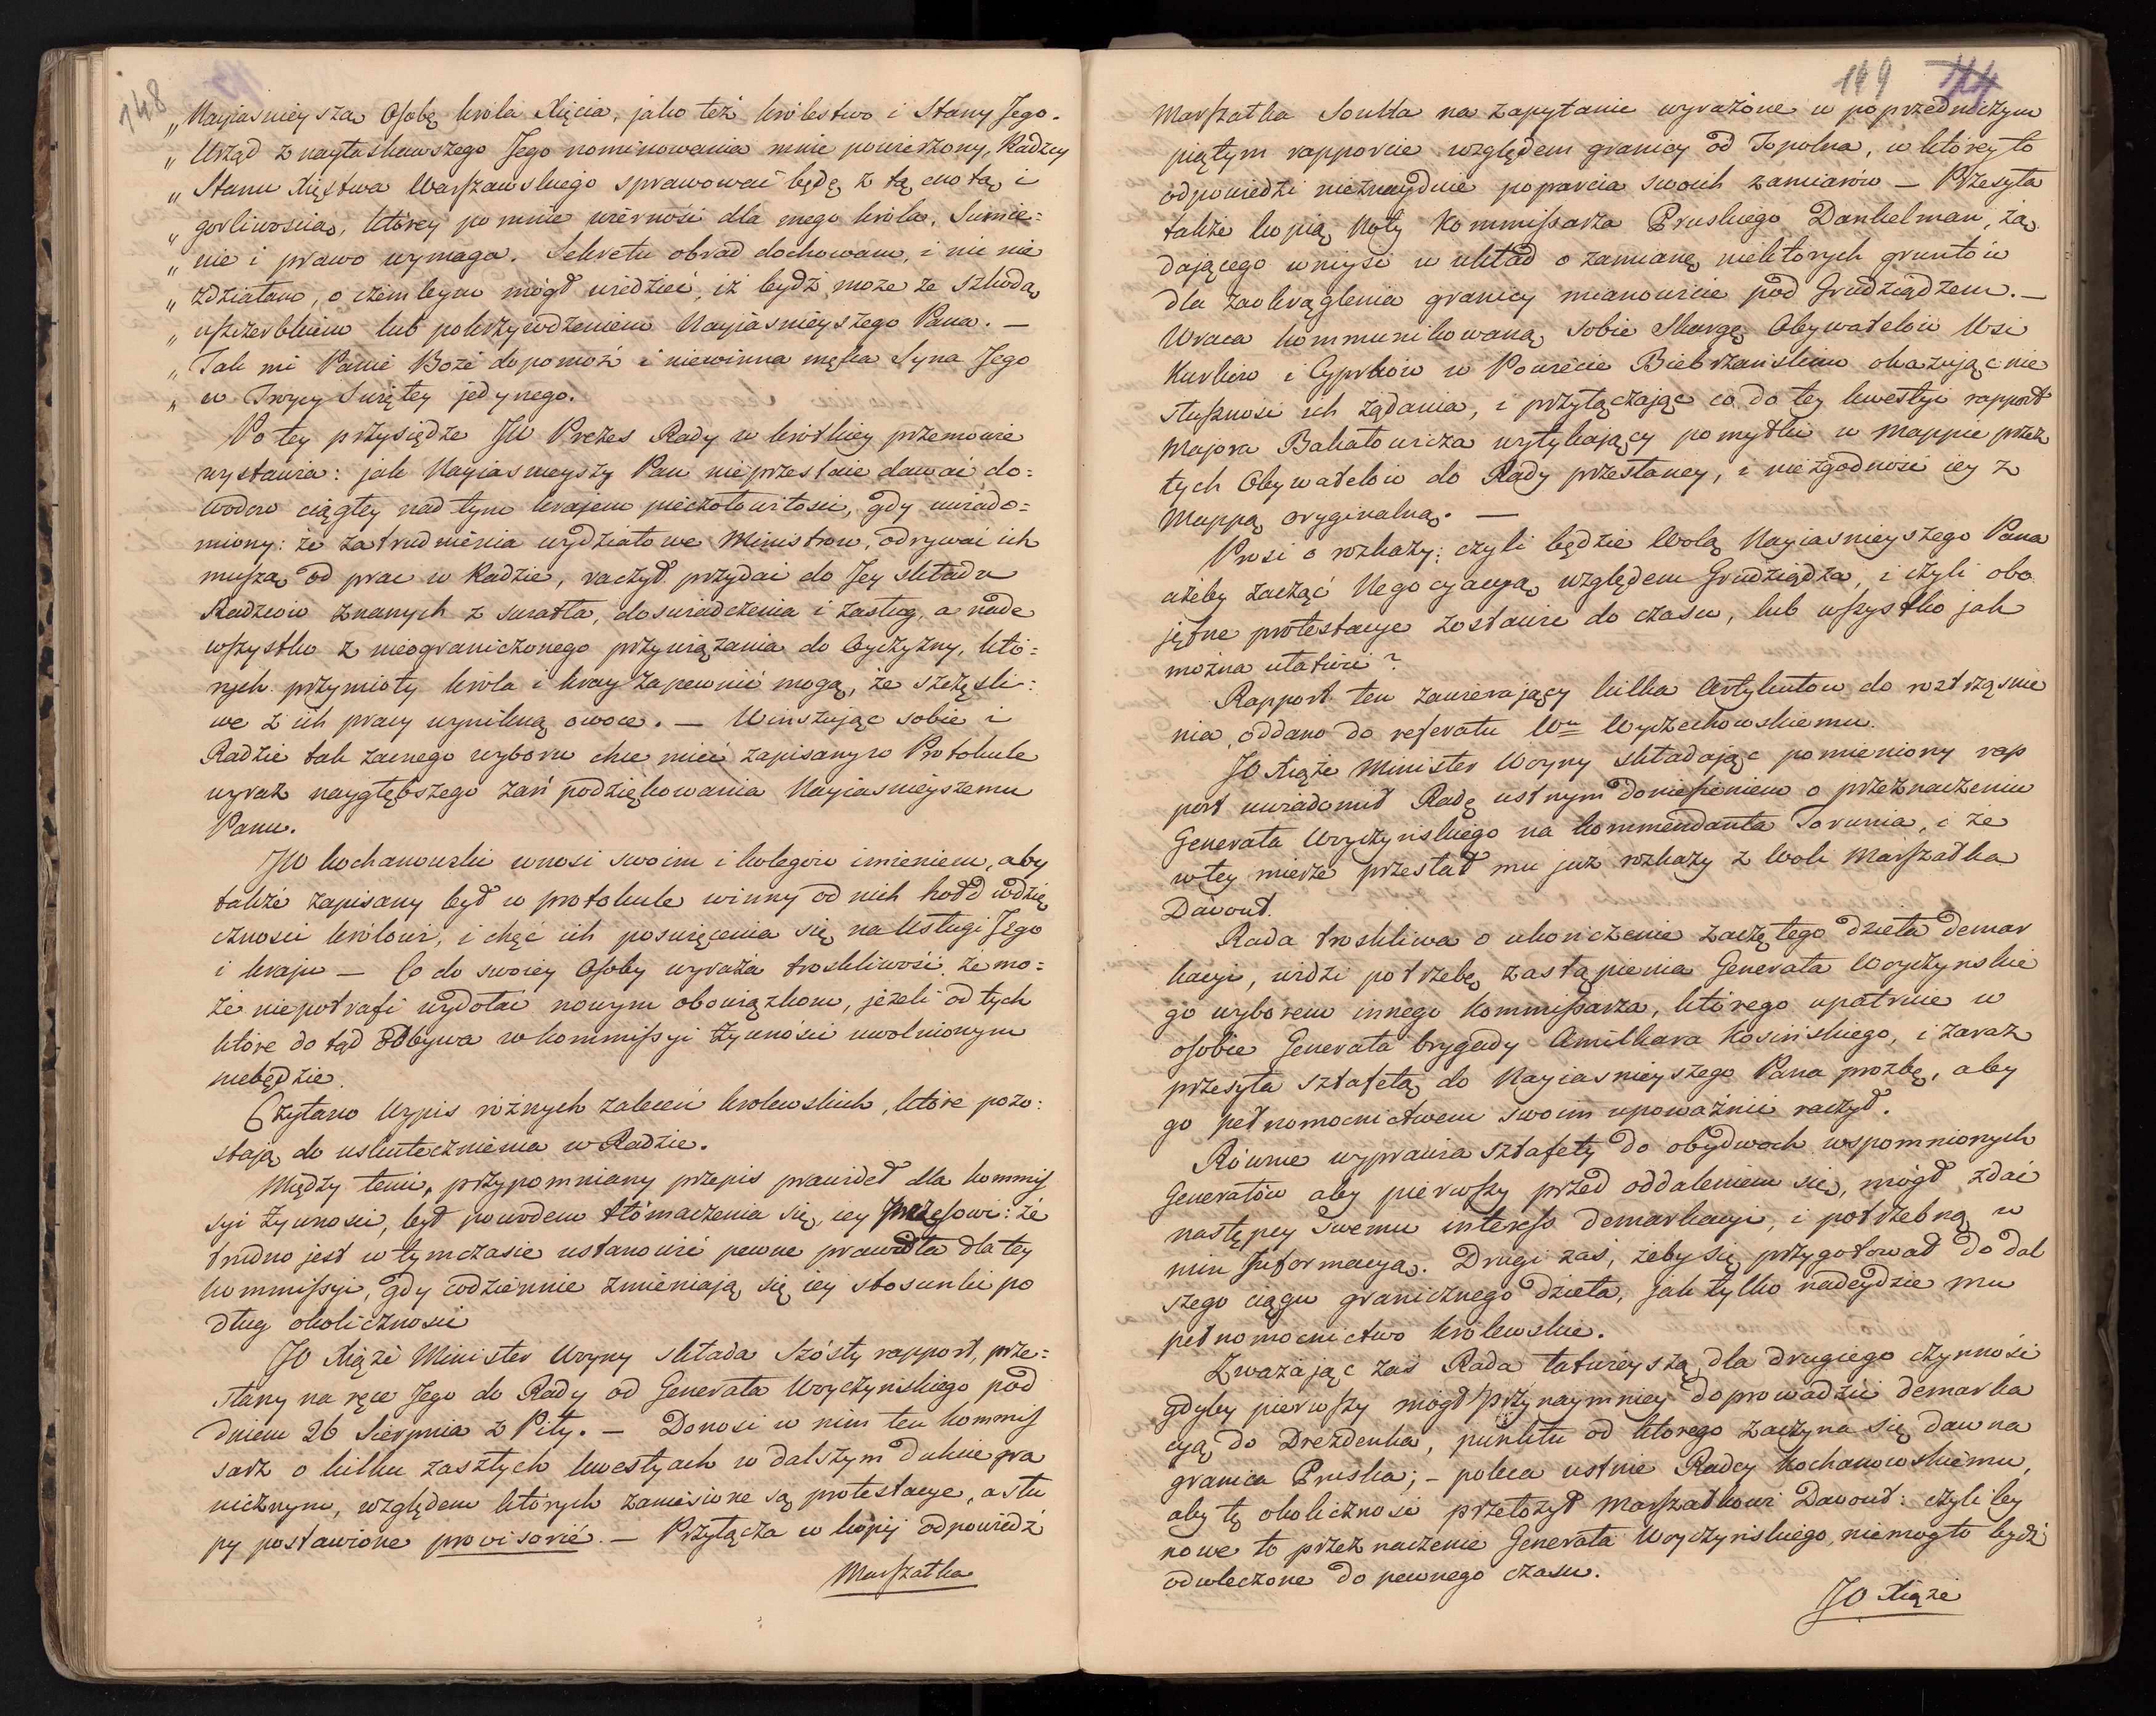 148
„Nayjasnieyszą Osobę króla Xięcia, jako też królestwo i Stany Jego.
„Urząd z nayłaskawszego Jego nominowania mnie powierzony, Radzcy
„Stanu Xięstwa Warszawskiego sprawować będę z tą cnotą i
„gorliwoscią, którey po mnie wierność dla mego króla, Sumie=
„nie i prawo wymaga. Sekretu obrad dochowam, i nic nie
„zdziałam, o czembym mógł wiedzieć, iż bydź może ze szkodą
„uszczerbkiem lub pokrzywdzeniem Nayjasnieyszego Pana. —
„Tak mi Panie Boże dopomóż i niewinna męka Syna Jego
„w Troycy Swiętey jedynego.
Po tey przysiędze JW Prezes Rady w krótkiey przemowie
wystawia: jak Nayiasnieyszy Pan nieprzestaie dawać do=
wodów ciągłey nad tym krajem pieczołowitości, gdy uwiado=
miony: że zatrudnienia wydziałowe Ministrów, odrywać ich
muszą od prac w Radzie, raczył przydać do Jey składu
Radzców znanych z swiatła, doswiadczenia i zasług, a nade
wszystko z nieograniczonego przywiązania do Oyczyzny, któ=
rych przymioty króla i kray zapewnić mogą, że szczęśli=
we z ich pracy wynikną owoce. — Winszując sobie i
Radzie tak zacnego wyboru chce mieć zapisany w Protokule
wyraz naygłębszego zań podziękowania Nayiasnieyszemu
Panu.
JW Kochanowski wnosi swoim i kolegów imieniem, aby
także zapisany był w protokule winny od nich hołd wdzię
czności królowi, i chęć ich poswięcenia się na Usługi Jego
i kraju — Co do swoiey Osoby wyraża troskliwość, że mo=
że niepotrafi wydołać nowym obowiązkom, jeżeli od tych
które do tąd odbywa w kommissyi żywności uwolnionym
niebędzie.
Czytano Wypis różnych zaleceń krolewskich, które pozo=
stają do uskutecznienia w Radzie.
Między temi, przypomniany przepis prawideł dla kommis
syi żywnosci, był powodem tłómaczenia się iey Prezesowi: że
trudno jest w tymczasie ustanowić pewne prawidła dla tey
kommissyi, gdy codziennie zmieniają się iey stosunki po
dług okoliczności
JO Xiąże Minister Woyny składa Szósty rapport, prze=
słany na ręce Jego do Rady od Generała Woyczyńskiego pod
dniem 26 Sierpnia z Piły. — Donosi w nim ten kommis
sarz o kilku zaszłych kwestyach w dalszym duktcie gra
nicznym, względem których zaniesione są protestacye, a słu
py postawione provisorié. — Przyłącza w kopij odpowiedź
Marszałka
149 144
Marszałka Soulta na zapytanie wyrażone w poprzedniczym
piątym rapporcie względem granicy od Topolna, w którey to
odpowiedzi nieznayduie poparcia swoich zamiarów — Przesyła
także kopią Noty Kommissarza Pruskiego Dankelman, żą
dającego wnyść w układ o zamianę niektórych gruntów
dla zaokrąglenia granicy mianowicie pod Grudziądzem. —
Wraca kommunikowaną sobie Skargę Obywatelów Wsi
Kurkow i Cyprków w Powiecie Biebrzańskim okazując nie
słuszność ich żądania, i przyłączając co do tey kwestyi rapport
Majora Bakałowicza wytykający pomyłki w mappie przez
tych Obywatelów do Rady przesłaney, i niezgodność iey z
Mappą oryginalną. —
Prosi o rozkazy: czyli będzie Wolą Nayiasnieyszego Pana
ażeby zacząć Negocyacyą względem Grudziądza, i czyli obo
jętne protestacye zostawić do czasu, lub wszystko jak
można ułatwić?
Rapport ten zawierający kilka Artykułów do roztrząsnie
nia, oddano do referatu Wu Wyczechowskiemu.
JO Xiąże Minister Woyny składając pomieniony rap
port uwiadomił Radę ustnym doniesieniem o przeznaczeniu
Generała Woyczyńskiego na kommendanta Torunia, i że
w tey mierze przesłał mu już rozkazy z Woli Marszałka
Davout.
Rada troskliwa o ukończenie zaczętego dzieła demar
kacyi, widzi potrzebę zastąpienia Generała Woyczyńskie
go wyborem innego Kommissarza, którego upatruie w
osobie Generała brygady Amilkara Kosińskiego, i zaraz
przesyła sztafetą do Nayiasnieyszego Pana prozbę, aby
go pełnomocnictwem swoim upoważnić raczył.
Równie wyprawia sztafetę do obydwoch wspomnionych
Generałów aby pierwszy przed oddaleniem się, mógł zdać
następcy swemu interess demarkacyi, i potrzebną w
nim Jnformacyą. Drugi zaś, żeby się przygotował do dal
szego ciągu granicznego dzieła, jak tylko nadeydzie mu
pełnomocnictwo królewskie.
Zważając zaś Rada łatwieyszą dla drugiego czynność
gdyby pierwszy mógł przynaymniey doprowadzić demarka
cyą do Drezdenka, punktu od ktorego zaczyna się dawna
granica Pruska; — poleca ustnie Radcy Kochanowskiemu,
aby tę okoliczność przełożył Marszałkowi Davout: czyliby
nowe to przeznaczenie Generała Woyczyńskiego, niemogło bydź
odwleczone do pewnego czasu.
JO Xiąże